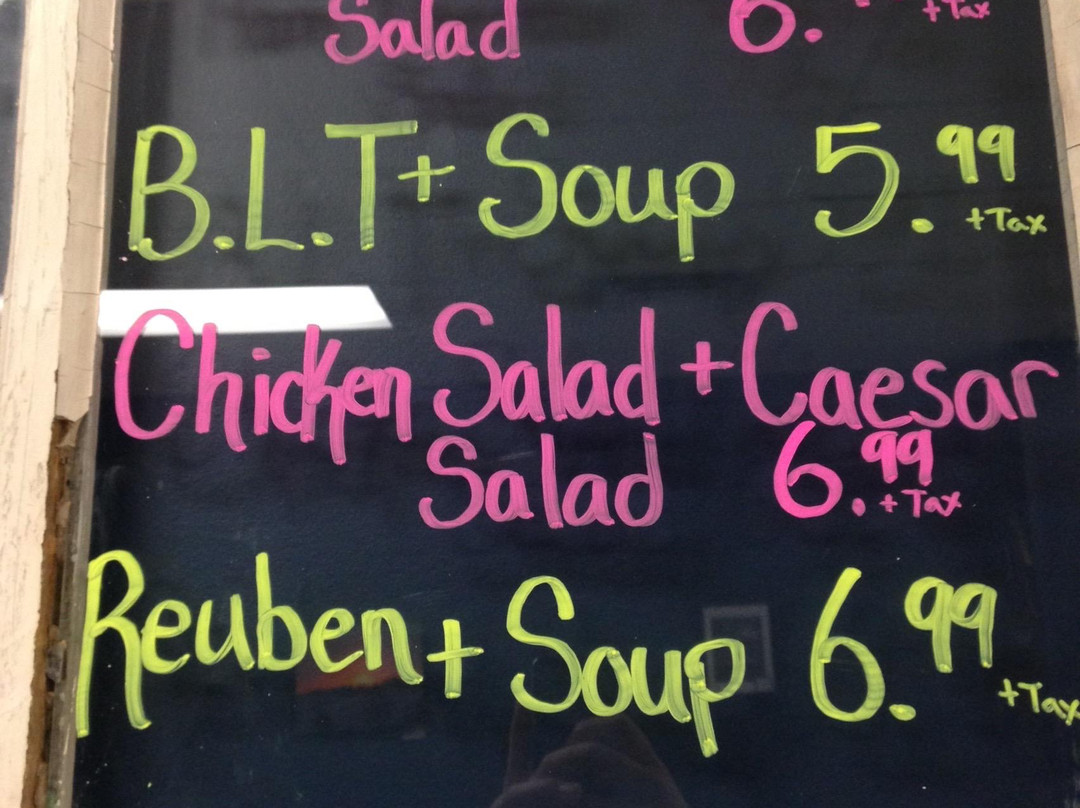 Salad 6.
+Tax
B.L.T + Soup 5.99
+Tax
Chicken Salad + Caesar
Salad 6.99
+ Tax
Reuben + Soup 6.99
+Tax